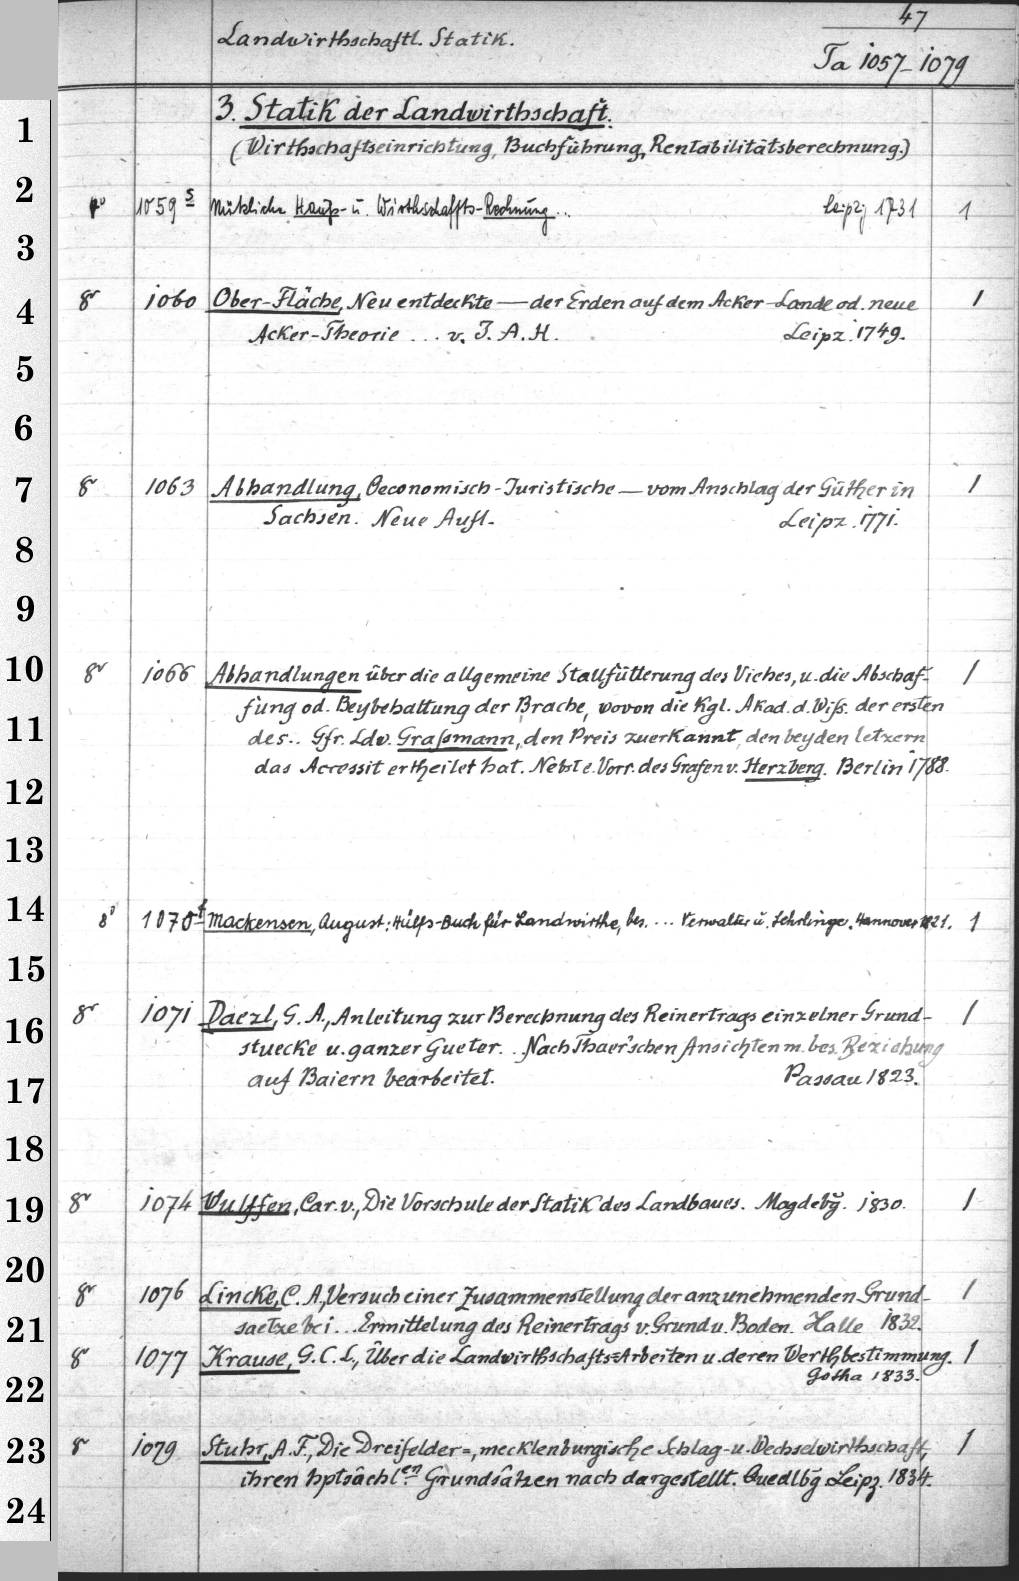 47
Landwirthschaftl. Statik.
Ta 1057-1079
1
3. Statik der Landwirthschaft.
(Wirthschaftseinrichtung, Buchführung, Rentabilitätsberechnung.)
2
1059 s Nützliche Hauß- u. Wirthschaffts-Rechnung... Leipzig 1731 1
3
8° 1060 Ober-Fläche, Neu entdeckte — der Erden auf dem Acker-Lande od. neue 1
4
Acker-Theorie ... v. J. A. H. Leipz. 1749.
5
6
7
8° 1063 Abhandlung, Oeconomisch-Juristische — vom Anschlag der Güther in 1
Sachsen. Neue Aufl. Leipz. 1771.
8
9
10
8° 1066 Abhandlungen über die allgemeine Stallfütterung des Viehes, u. die Abschaf- 1
fung od. Beybehaltung der Brache, wovon die Kgl. Akad. d. Wiss. der ersten
11
des.. Gfr. Ldw. Grassmann, den Preis zuerkannt, den beyden letzern
das Accessit ertheilet hat. Nebst e. Vorr. des Grafen v. Herzberg. Berlin 1788.
12
13
14
8° 1070 f Mackensen, August: Hülfs-Buch für Landwirthe, bes. ... Verwalter u. Lehrlinge. Hannover 1821. 1
15
8° 1071 Daezl, G. A., Anleitung zur Berechnung des Reinertrags einzelner Grund- 1
16
stuecke u. ganzer Gueter.. Nach Thaer'schen Ansichten m. bes. Beziehung
auf Baiern bearbeitet. Passau 1823.
17
18
8° 1074 Wulffen, Car. v., Die Vorschule der Statik des Landbaues. Magdebg. 1830. 1
19
20
8° 1076 Lincke, C. A., Versuch einer Zusammenstellung der anzunehmenden Grund- 1
saetze bei ... Ermittelung des Reinertrags v. Grund u. Boden. Halle 1832.
21
8° 1077 Krause, G. C. L., Über die Landwirthschafts=Arbeiten u. deren Werthbestimmung. 1
Gotha 1833.
22
8° 1079 Stuhr, A. F., Die Dreifelder=, mecklenburgische Schlag- u. Wechselwirthschaft, 1
23
ihren hptsächl.en Grundsätzen nach dargestellt. Quedlbg Leipz. 1834.
24